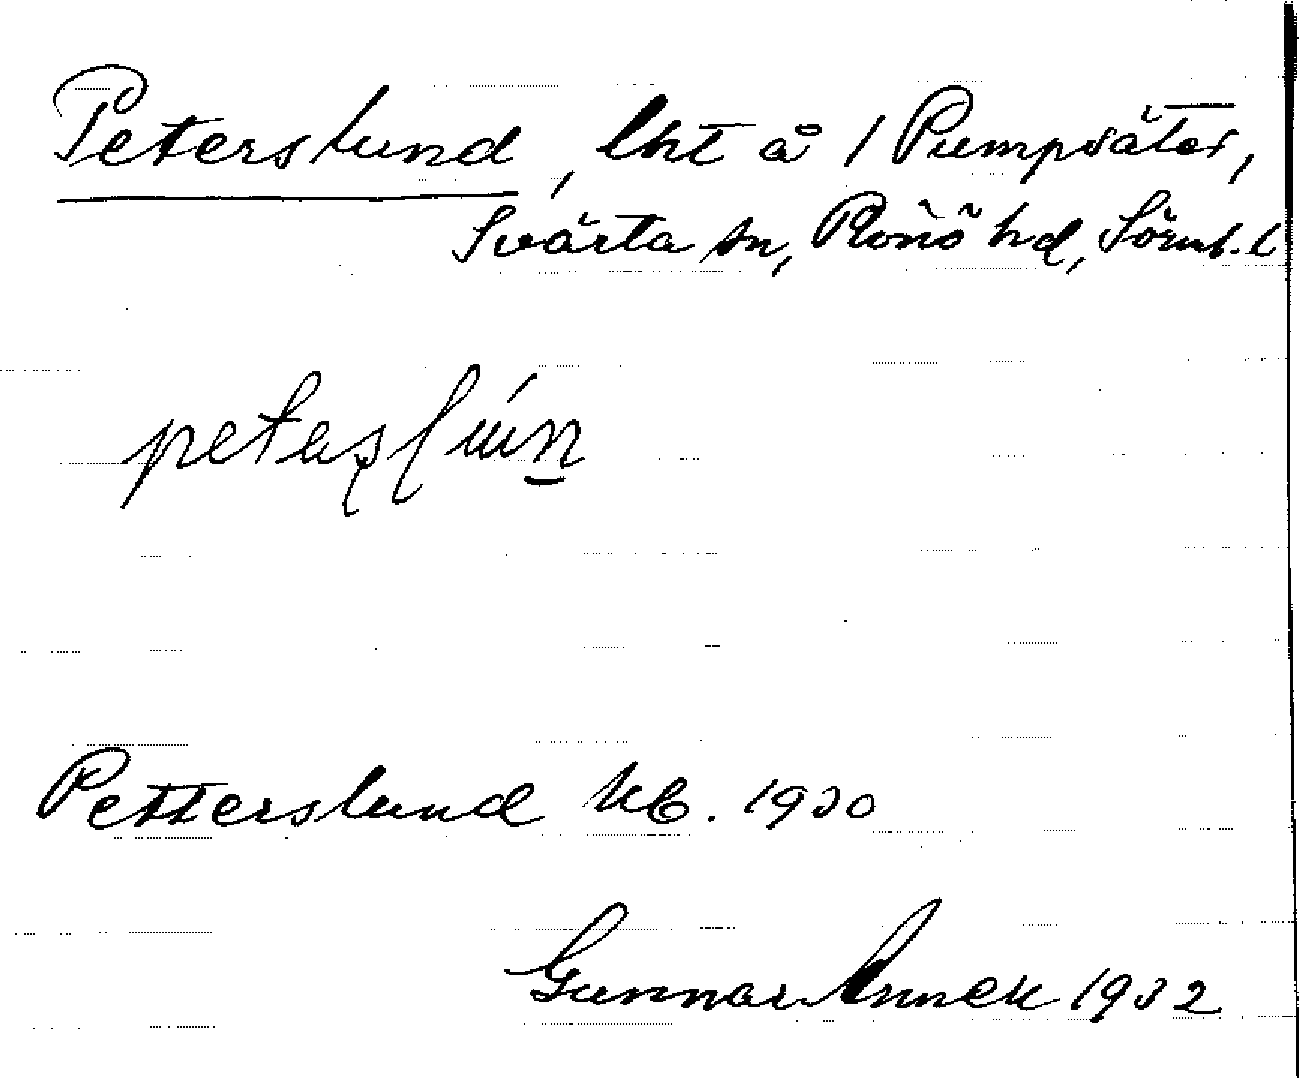 Peterslund, lht å 1 Pumpsäter,
Svärta sn, Rönö hd, Sörml. l
Petterslund kb. 1930
Gunnar Annell 1932